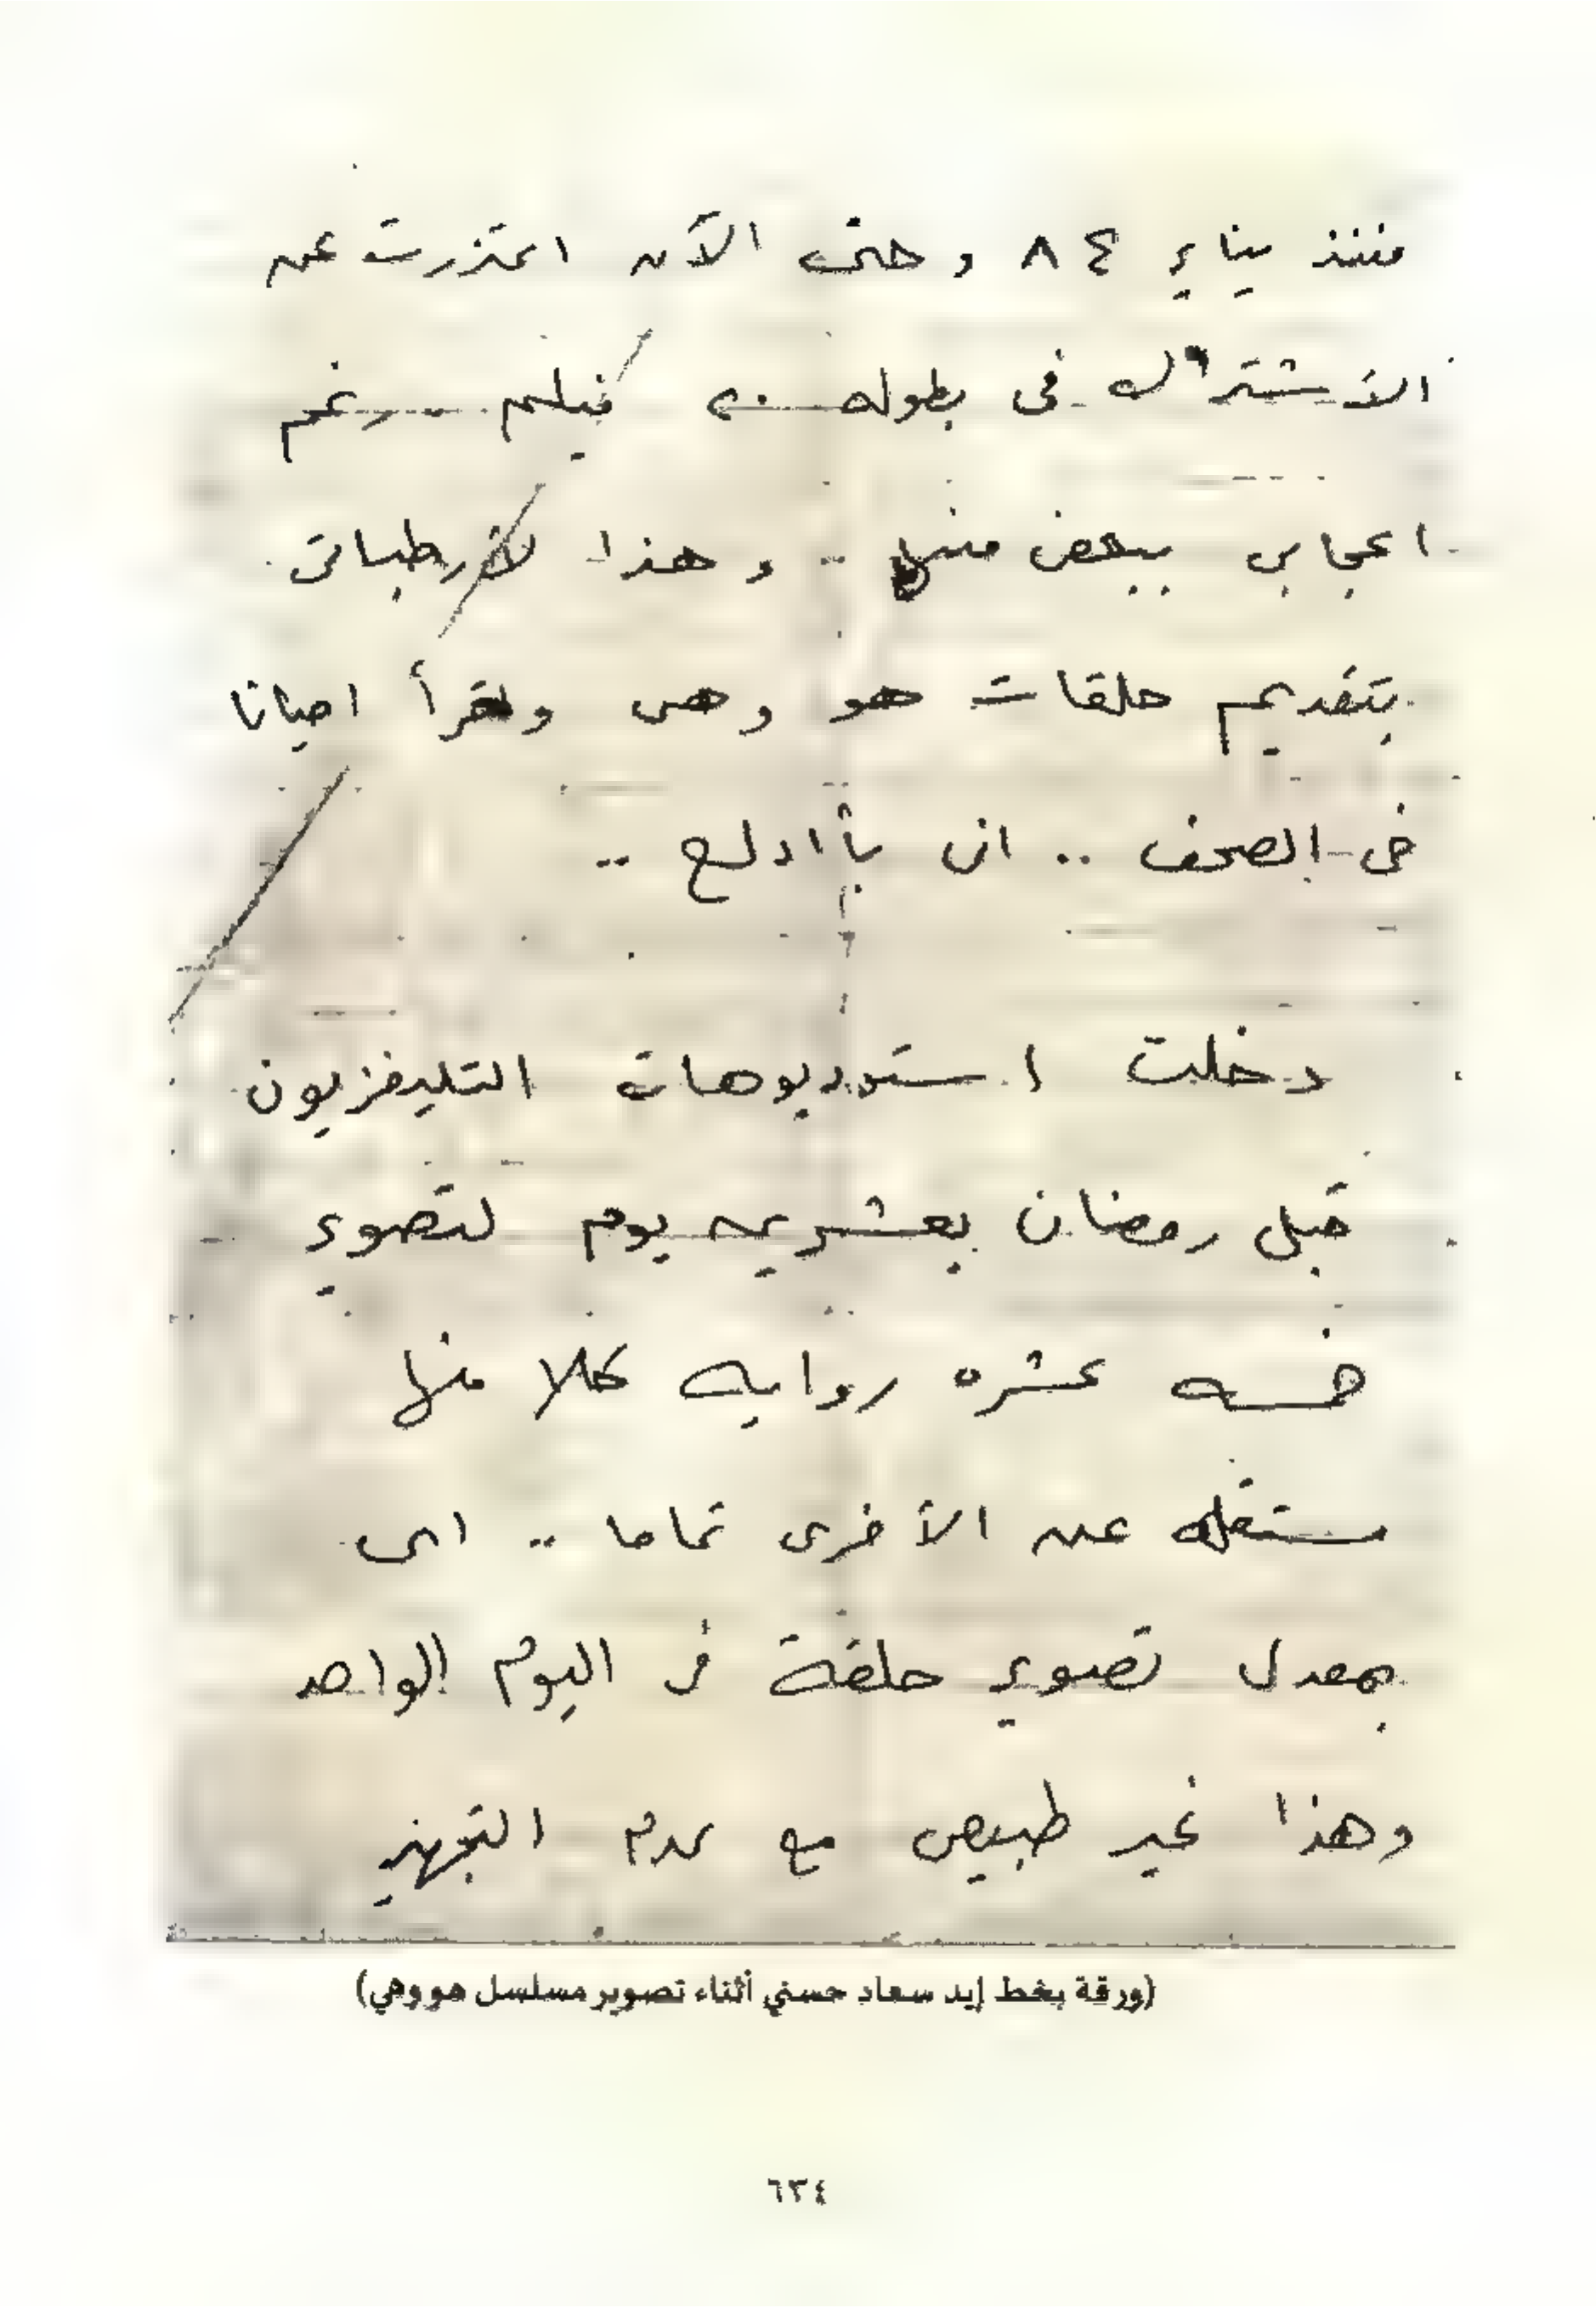 منذ يناير ٨٤ وحتى الآن اعتزرت عن
الأشتراك فى بطوله ٢٠ فيلم .. رغم
اعجابى ببعض منها .. وهذا لأرطباتى
بتقديم حلقات هو وهى ونقرأ احيانا
فى الصحف .. انى بأادلع ..
دخلت استوديوهات التليفزيون
قبل رمضان بعشرين يوم لتصوير
خمسه عشره روايه كلا منها
مستقله عن الأخرى تماما .. اى
بمعدل تصوير حلقة فى اليوم الواحد
وهذا غير طبيعى مع عدم التجهيز
(ورقة بخط إيد سعاد حسني أثناء تصوير مسلسل هو وهي)
٦٣٤